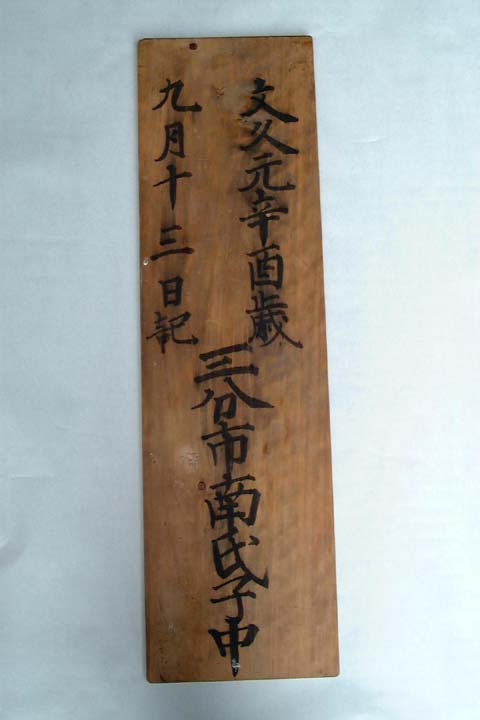 文久元辛酉歳
九月十三日記
三分市南氏子中